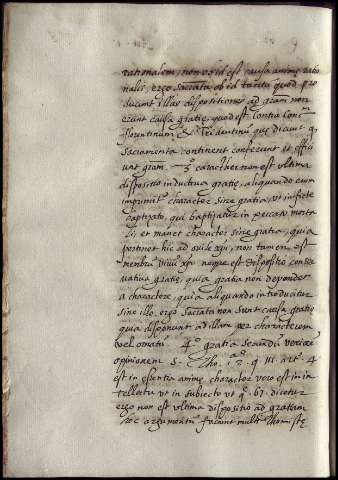 rationalem, non vo id est causa animę ratio
nalis, ergo Sacrata ob id tantū quod pro
ducunt illas dispositiones ad gram non
erunt causa gratię, quod est contra Conc.
florentinum & Tridentinū quę dicunt q.
Sacramenta continent conferunt et effici
unt gram. 3º caracther non est vltima
dispositio inductiua gratię, aliquando enim
imprimitr character sine gratia, vt in ficte
baptizato, qui baptizatur in peccato morta
li, et manet character sine gratia, quia
pertinet hic ad ouile xpi, non tamen est
membrū viuū xpi neque est dispositio conser
uatiua gratię, quia gratia non dependet
a charactere, quia aliquando introducitur
sine illo. ergo Sacrata non sunt causa gratię
quia disponunt ad illam per characterem
vel ornatū. 4º gratia secundū veriorē
opinionem S. Tho. 1ª 2. q. 111. art. 4
est in essentia animę, character vero est in in
tellectu vt in subiecto vt q. 63. dicetur
ergo non est vltima dispositio ad gratiam
hoc argumentū faciunt multi Thomistę